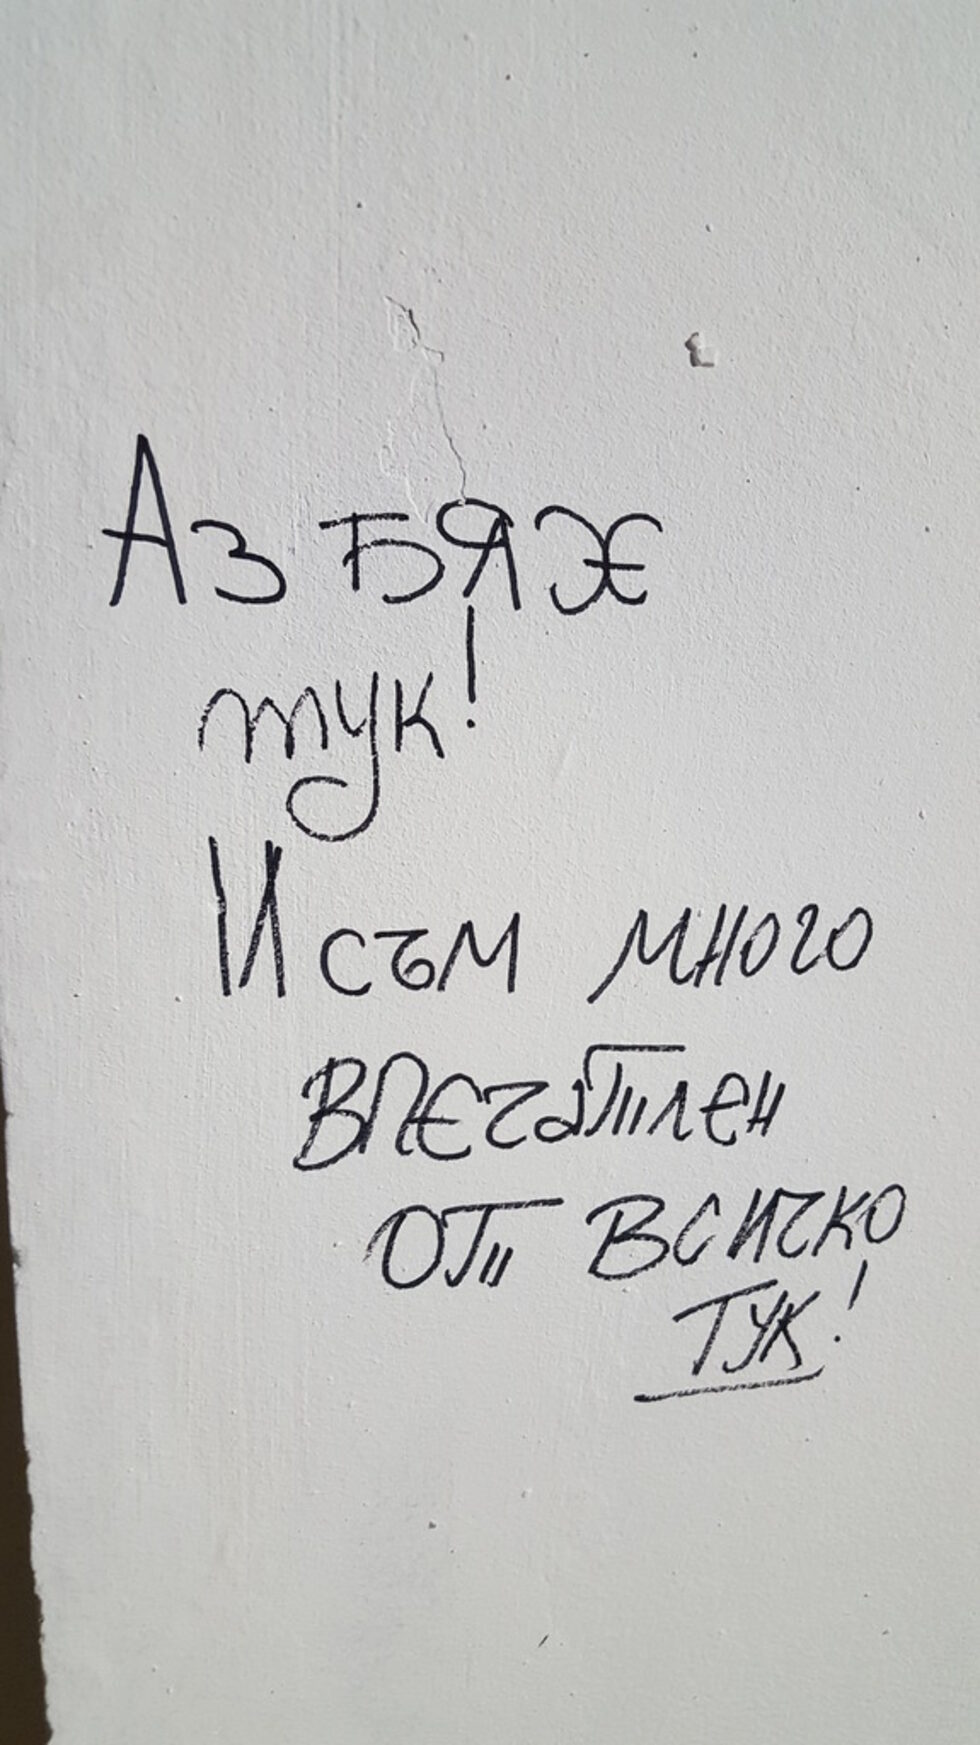 Аз бях
тук!
И съм много
впечатлен
от всичко
тук!